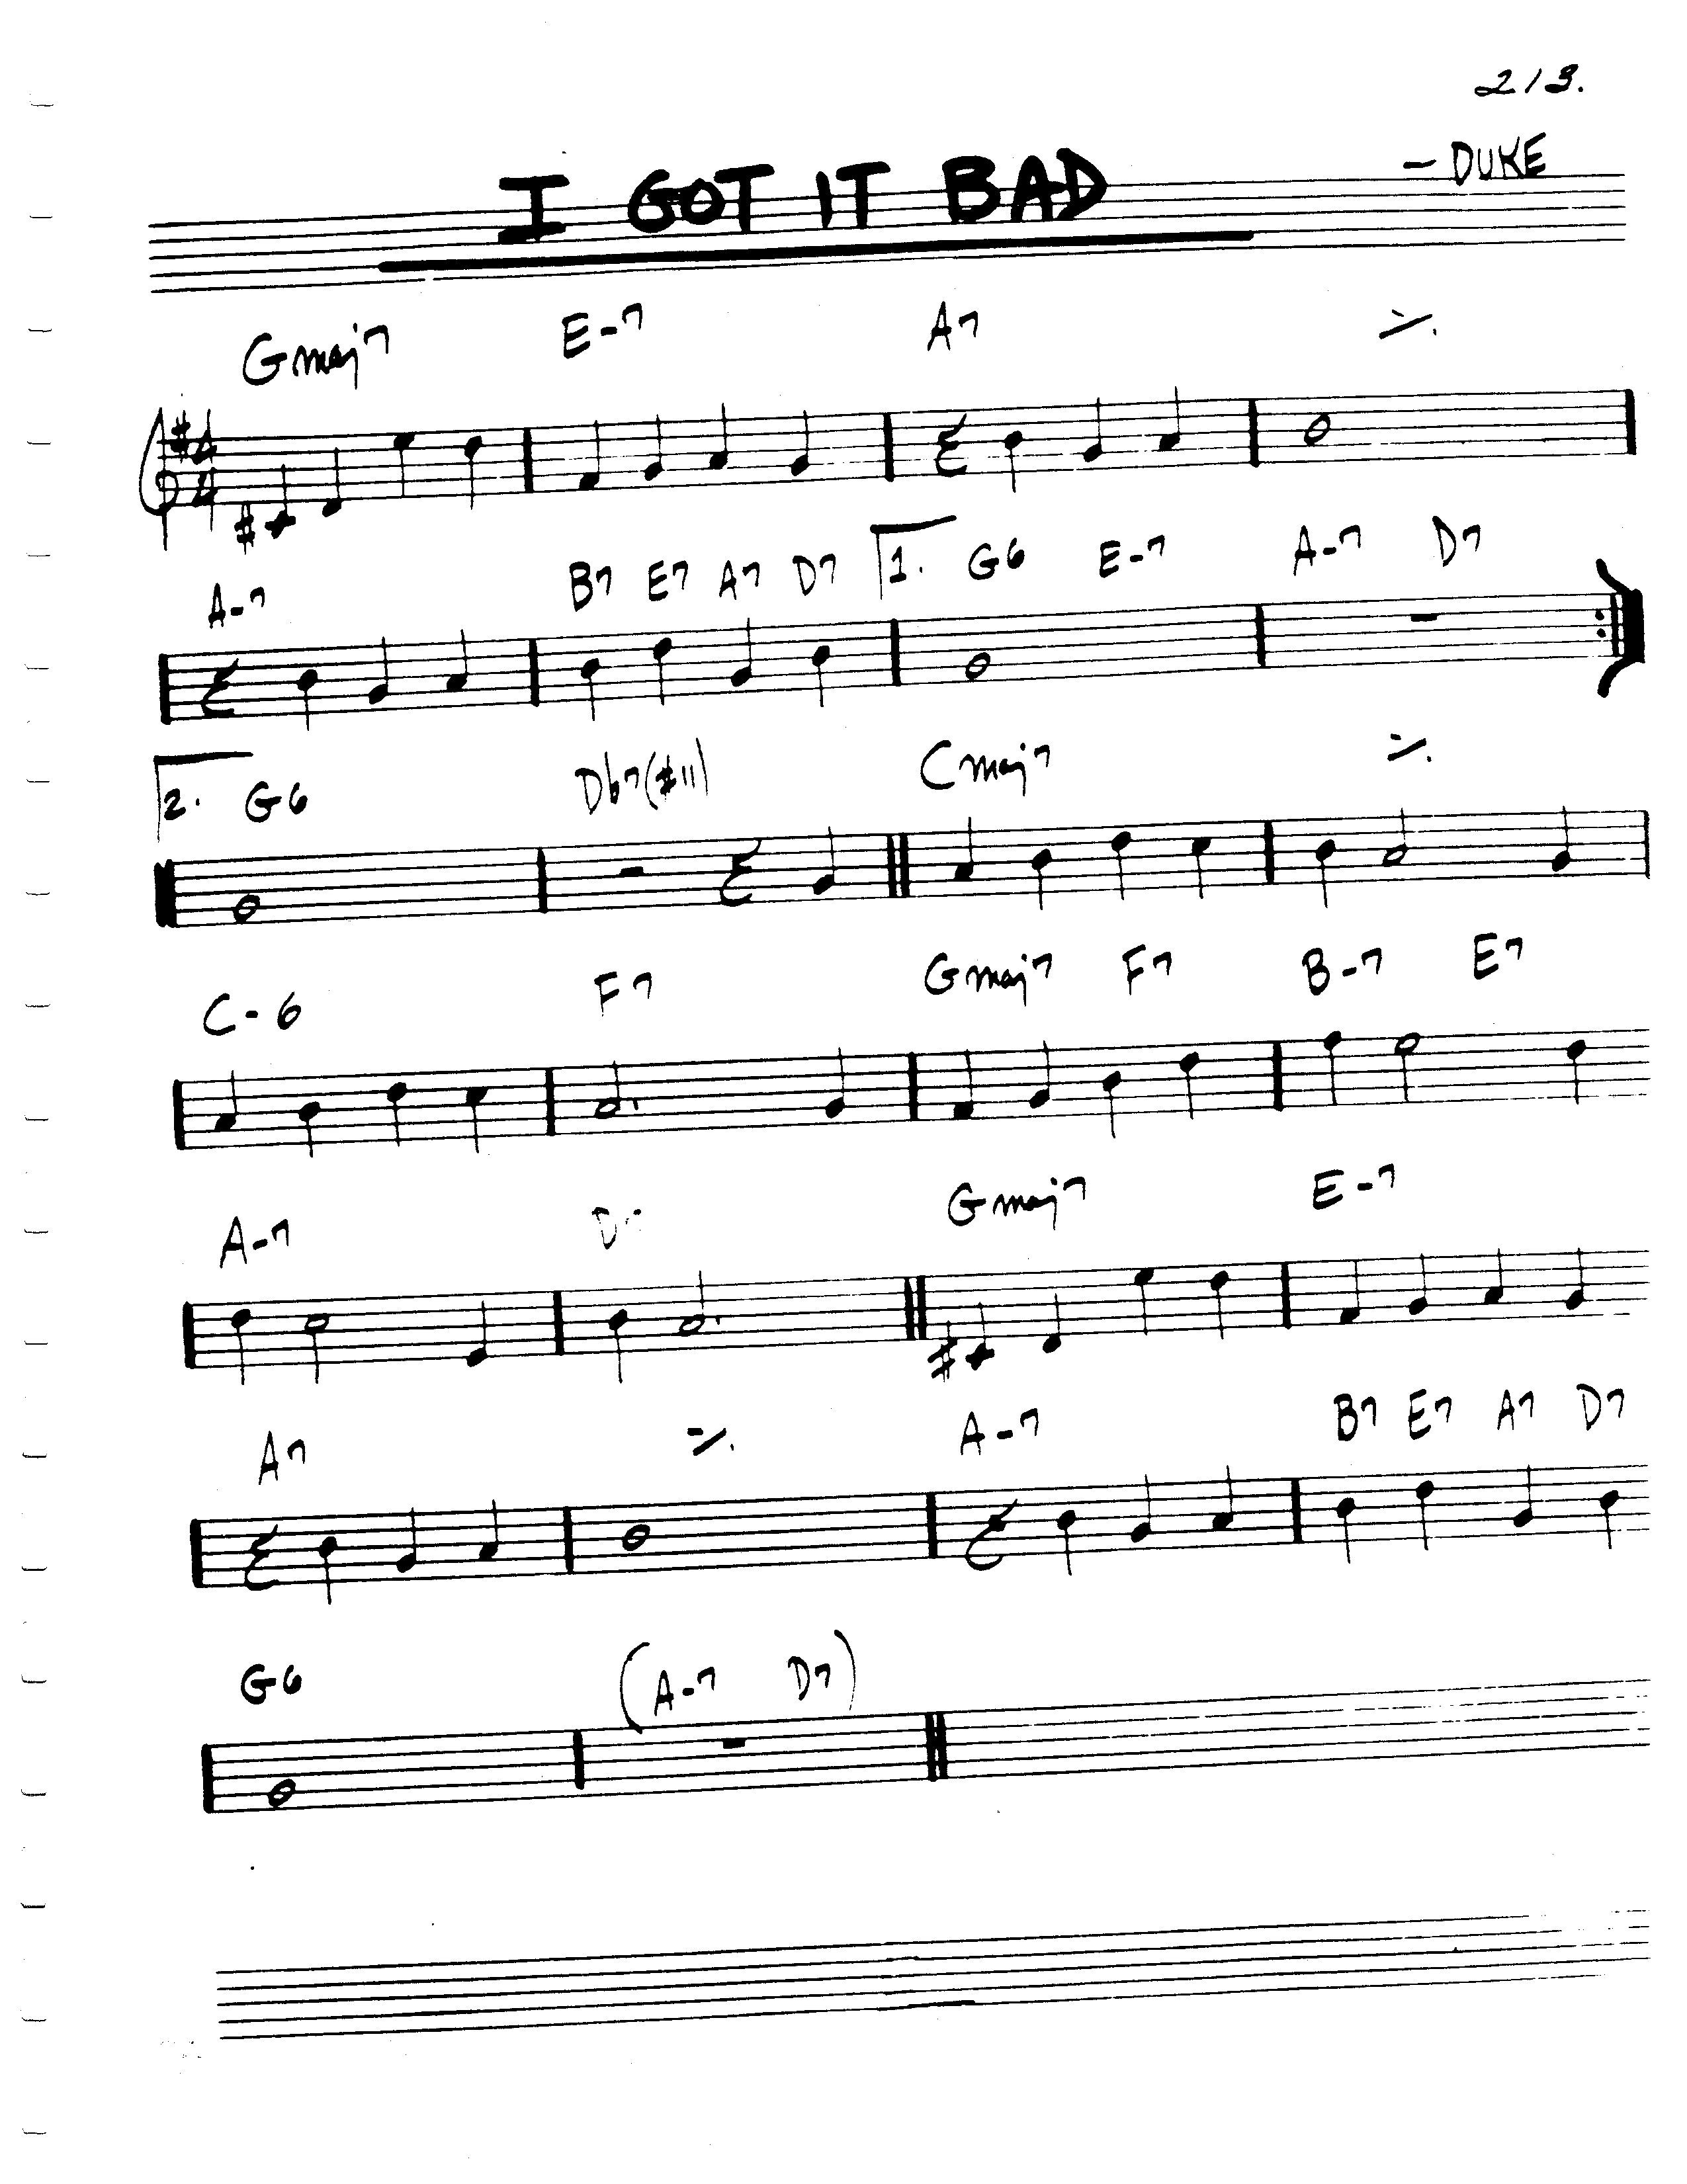 213.
I GOT IT BAD
– DUKE
Gmaj7 E-7 A7 ٪
A-7 B7 E7 A7 D7 1. G6 E-7 A-7 D7
2. G6 Db7(#11) Cmaj7 ٪
C-6 F7 Gmaj7 F7 B-7 E7
A-7 Gmaj7 E-7
A7 ٪ A-7 B7 E7 A7 D7
G6 (A-7 D7)